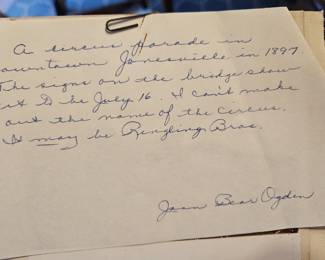 A circus parade in
downtown Janesville in 1897
The signs on the bridge show
it to be July 16. I can't make
out the name of the circus.
It may be Ringling Bros.
Joan Bear Ogden